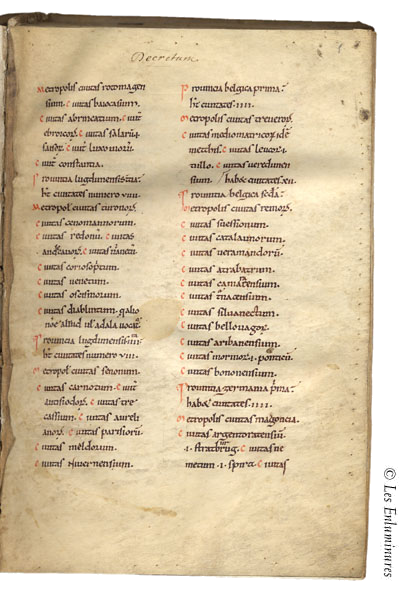 Decretum
Metropolis ciuitas rotomagen
sium. Ciuitas baiocasium.
Ciuitas abrincatum. Ciuit
ebroicor. Ciuitas salarii.
saior. Ciuit luxouiorū.
Ciuit constantia.
Prouincia lugdunensis tercia
ht ciuitates numero viiii
Metropol ciuitas turonor.
Ciuitas cenomannorum.
Ciuitas redonū. Ciuitas
andeauor. Ciuitas nānetū
Ciuitas coriosopitum.
Ciuitas uenetum.
Ciuitas osismorum.
Ciuitas diablintum. q alio
noīe aliud ul adala uocat.
Prouincia lugdunensis
ht ciuitates numero viii.
Metropol ciuitas senonum.
Ciuitas carnotum. Ciuit
autisiodor. Ciuitas tre
cassium. Ciuitas aureli
anor. Ciuitas parisiorū
Ciuitas meldorum.
Ciuitas niuernensium.
Prouincia belgica prima
ht ciuitates. iiii.
Metropolis ciuitas treueror.
Ciuitas mediomatricor. idē
metthis. Ciuitas leucor. i
tullo. Ciuitas ueredunen
sium. habet ciuitates. xii.
Prouincia belgica seda
Metropolis ciuitas remor.
Ciuitas suessionum.
Ciuitas catalaunorum.
Ciuitas ueramandorū.
Ciuitas atrabatum.
Ciuitas camacensium.
Ciuitas tnacensium.
Ciuitas siluanectum.
Ciuitas bellouagor.
Ciuitas ambanensium.
Ciuitas morinor. i. ponticū.
Ciuitas bononensium.
Prouincia germania prima
habet ciuitates. iiii.
Metropolis ciuitas magoncia.
Ciuitas argentoratensiū
.i. stratburg. Ciuitas ne
metum .i. spira. Ciuitas
© Les Enluminures